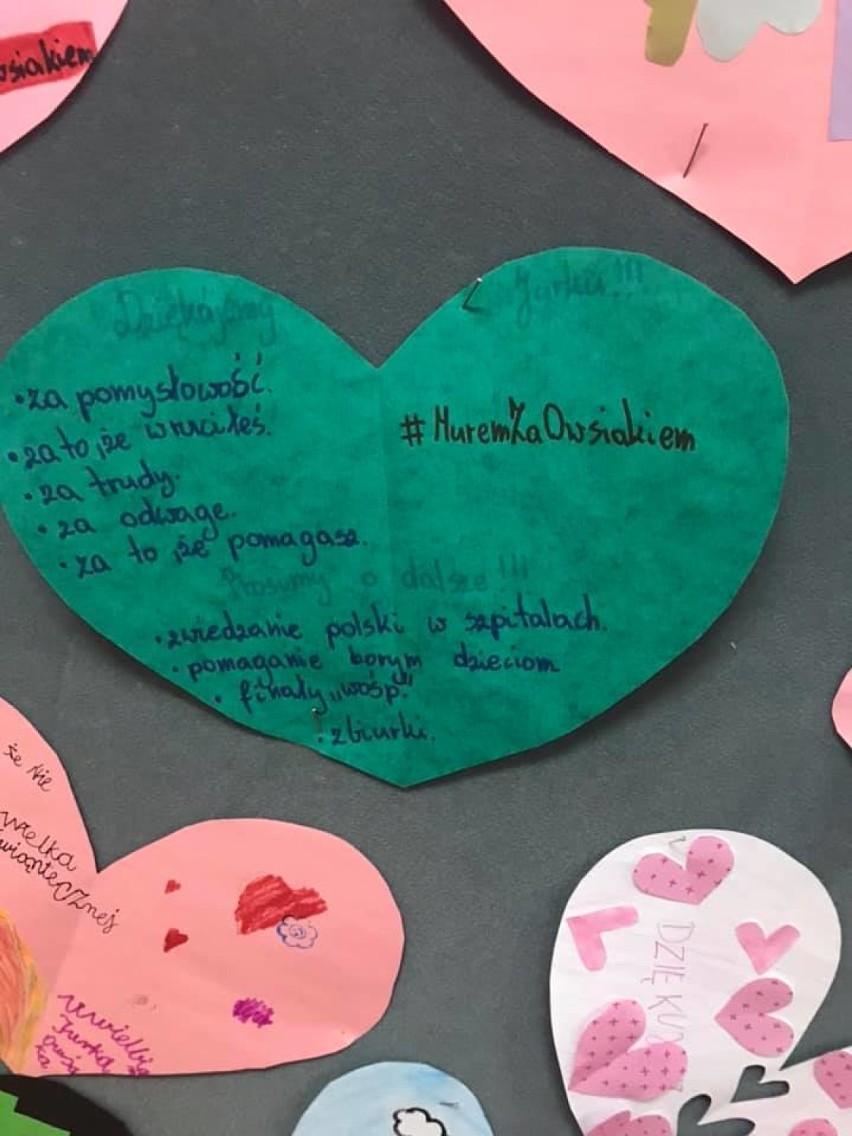 wsiakiem
Dziękujemy Jurku!!!
• za pomysłowość.
• za to, że wruciłeś.
#MuremZaOwsiakiem
• za trudy.
• za odwagę.
• za to, że pomagasz.
Prosimy o dalsze!!!
• zwiedzanie polski w szpitalach.
• pomaganie borym dzieciom
• finały „wośp."
! zbiurki.
że Nie
wielka
świątecznej
uwielbia
Jurka
DZIĘKU